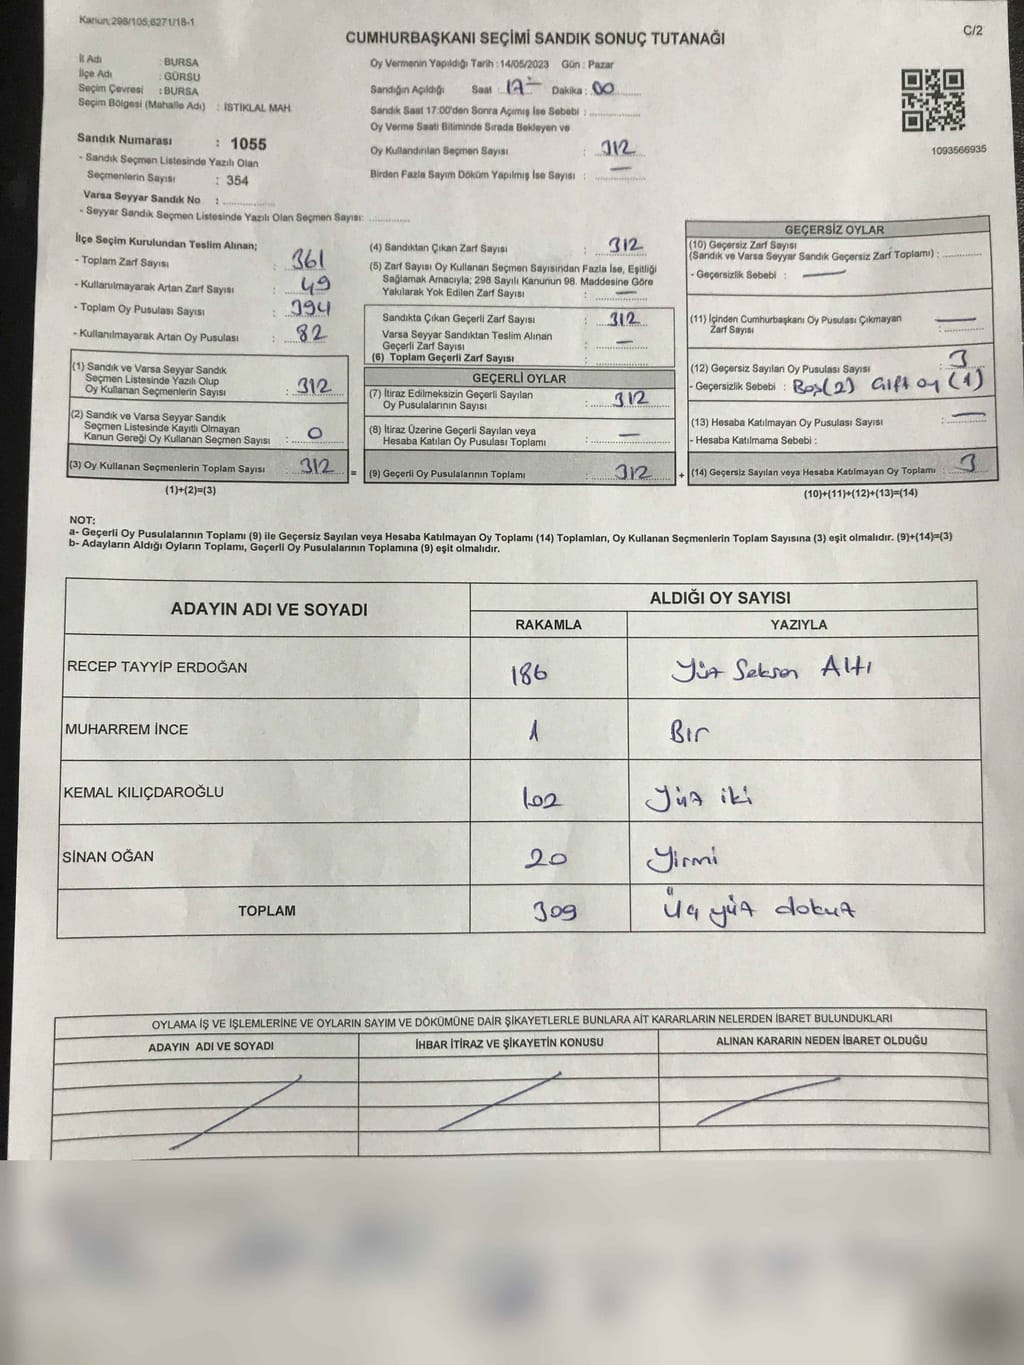 Kanun;298/105,6271/18-1
C/2
CUMHURBAŞKANI SEÇİMİ SANDIK SONUÇ TUTANAĞI
İl Adı : BURSA
İlçe Adı : GÜRSU
Seçim Çevresi : BURSA
Seçim Bölgesi (Mahalle Adı) : İSTİKLAL MAH.
Sandık Numarası : 1055
- Sandık Seçmen Listesinde Yazılı Olan
Seçmenlerin Sayısı : 354
Varsa Seyyar Sandık No :
- Seyyar Sandık Seçmen Listesinde Yazılı Olan Seçmen Sayısı:
Oy Vermenin Yapıldığı Tarih :14/05/2023 Gün : Pazar
Sandığın Açıldığı Saat : 17 Dakika : 00
Sandık Saat 17:00'den Sonra Açımış İse Sebebi :
Oy Verme Saati Bitiminde Sırada Bekleyen ve
Oy Kullandırılan Seçmen Sayısı : 312
Birden Fazla Sayım Döküm Yapılmış İse Sayısı : —
1093566935
İlçe Seçim Kurulundan Teslim Alınan;
- Toplam Zarf Sayısı : 361
- Kullanılmayarak Artan Zarf Sayısı : 49
- Toplam Oy Pusulası Sayısı : 394
- Kullanılmayarak Artan Oy Pusulası : 82
(1) Sandık ve Varsa Seyyar Sandık
Seçmen Listesinde Yazılı Olup
Oy Kullanan Seçmenlerin Sayısı : 312
(2) Sandık ve Varsa Seyyar Sandık
Seçmen Listesinde Kayıtlı Olmayan
Kanun Gereği Oy Kullanan Seçmen Sayısı : 0
(3) Oy Kullanan Seçmenlerin Toplam Sayısı : 312
(1)+(2)=(3)
(4) Sandıktan Çıkan Zarf Sayısı : 312
(5) Zarf Sayısı Oy Kullanan Seçmen Sayısından Fazla İse, Eşitliği
Sağlamak Amacıyla; 298 Sayılı Kanunun 98. Maddesine Göre
Yakılarak Yok Edilen Zarf Sayısı : —
Sandıkta Çıkan Geçerli Zarf Sayısı : 312
Varsa Seyyar Sandıktan Teslim Alınan
Geçerli Zarf Sayısı : —
(6) Toplam Geçerli Zarf Sayısı :
GEÇERLİ OYLAR
(7) İtiraz Edilmeksizin Geçerli Sayılan
Oy Pusulalarının Sayısı : 312
(8) İtiraz Üzerine Geçerli Sayılan veya
Hesaba Katılan Oy Pusulası Toplamı : —
= (9) Geçerli Oy Pusulalarının Toplamı : 312 +
GEÇERSİZ OYLAR
(10) Geçersiz Zarf Sayısı
(Sandık ve Varsa Seyyar Sandık Geçersiz Zarf Toplamı) :
- Geçersizlik Sebebi : —
(11) İçinden Cumhurbaşkanı Oy Pusulası Çıkmayan
Zarf Sayısı : —
(12) Geçersiz Sayılan Oy Pusulası Sayısı : 3
- Geçersizlik Sebebi : Boş(2) Çift oy (1)
(13) Hesaba Katılmayan Oy Pusulası Sayısı : —
- Hesaba Katılmama Sebebi :
(14) Geçersiz Sayılan veya Hesaba Katılmayan Oy Toplamı : 3
(10)+(11)+(12)+(13)=(14)
NOT:
a- Geçerli Oy Pusulalarının Toplamı (9) ile Geçersiz Sayılan veya Hesaba Katılmayan Oy Toplamı (14) Toplamları, Oy Kullanan Seçmenlerin Toplam Sayısına (3) eşit olmalıdır. (9)+(14)=(3)
b- Adayların Aldığı Oyların Toplamı, Geçerli Oy Pusulalarının Toplamına (9) eşit olmalıdır.
ADAYIN ADI VE SOYADI ALDIĞI OY SAYISI
RAKAMLA YAZIYLA
RECEP TAYYİP ERDOĞAN 186 Yüz Seksen Altı
MUHARREM İNCE 1 Bir
KEMAL KILIÇDAROĞLU 102 Yüz iki
SİNAN OĞAN 20 Yirmi
TOPLAM 309 Üç yüz dokuz
OYLAMA İŞ VE İŞLEMLERİNE VE OYLARIN SAYIM VE DÖKÜMÜNE DAİR ŞİKAYETLERLE BUNLARA AİT KARARLARIN NELERDEN İBARET BULUNDUKLARI
ADAYIN ADI VE SOYADI İHBAR İTİRAZ VE ŞİKAYETİN KONUSU ALINAN KARARIN NEDEN İBARET OLDUĞU